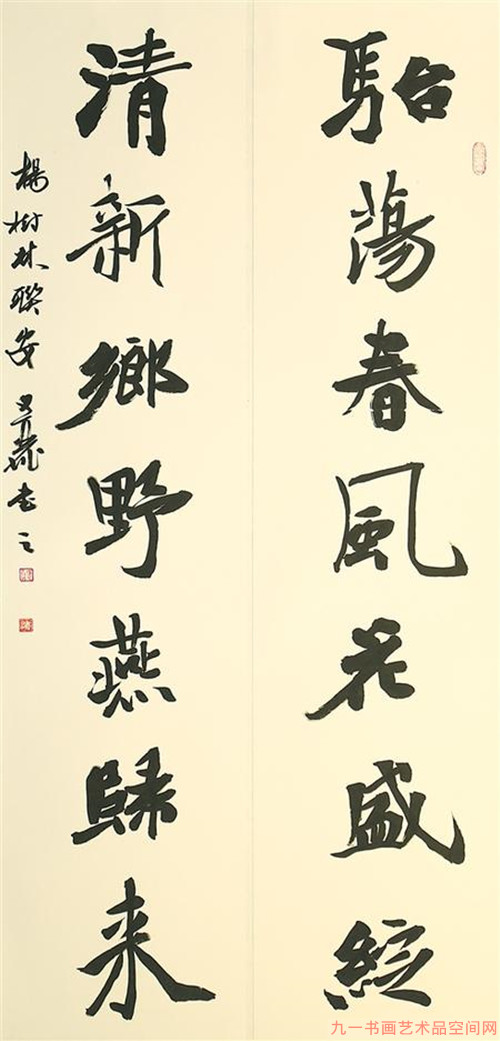 駘蕩春風花盛綻
清新鄉野燕歸来
楊樹林聯安书之
九一书画艺术品空间网